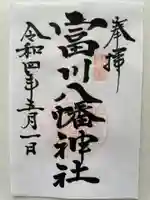 奉拝
富川八幡神社
令和四年三月一日